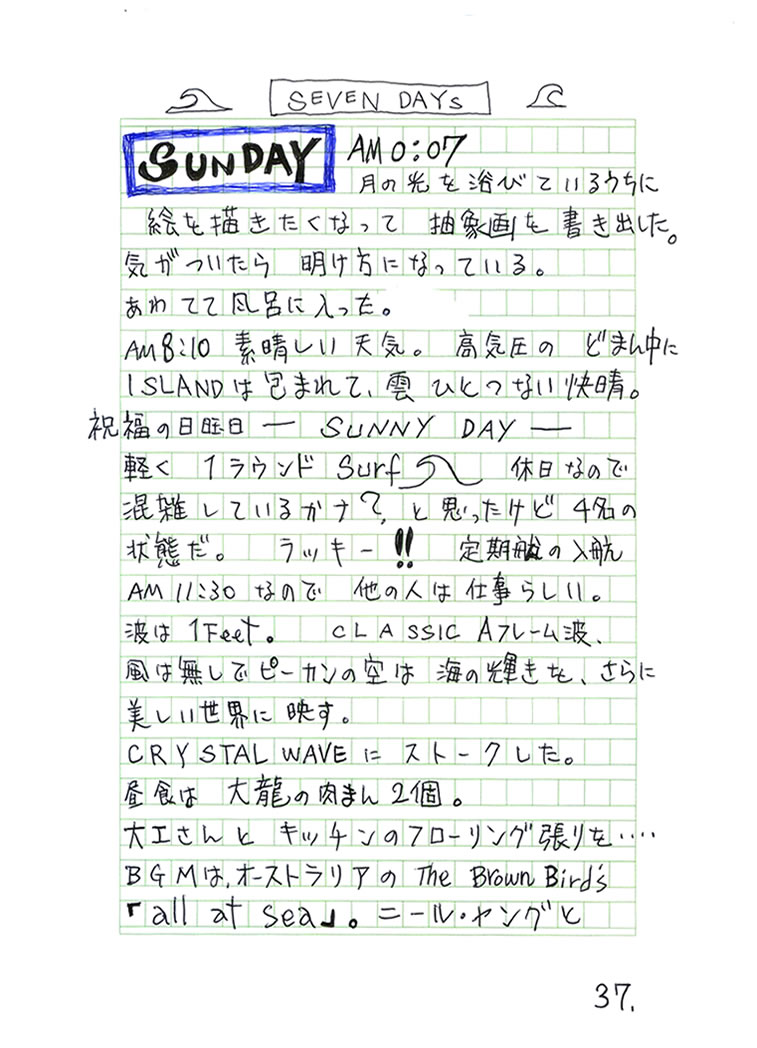 SEVEN DAYs
SUNDAY AM 0:07
月の光を浴びているうちに
絵を描きたくなって 抽象画を書き出した。
気がついたら 明け方になっている。
あわてて風呂に入った。
AM8:10 素晴しい天気。 高気圧の どまん中に
ISLANDは包まれて、雲ひとつない快晴。
祝福の日曜日 ― SUNNY DAY ―
軽く 1ラウンド Surf 休日なので
混雑しているかナ?、と思ったけど 4名の
状態だ。 ラッキー!! 定期船の入航
AM 11:30 なので 他の人は仕事らしい。
波は 1Feet。 CLASSIC Aフレーム波、
風は無しでピーカンの空は 海の輝きを、さらに
美しい世界に映す。
CRYSTAL WAVE に ストークした。
昼食は 大龍の肉まん 2個。
大工さんと キッチンのフローリング張りを‥‥
BGMは、オーストラリアの The Brown Bird's
「all at sea」。ニール・ヤングと
37.